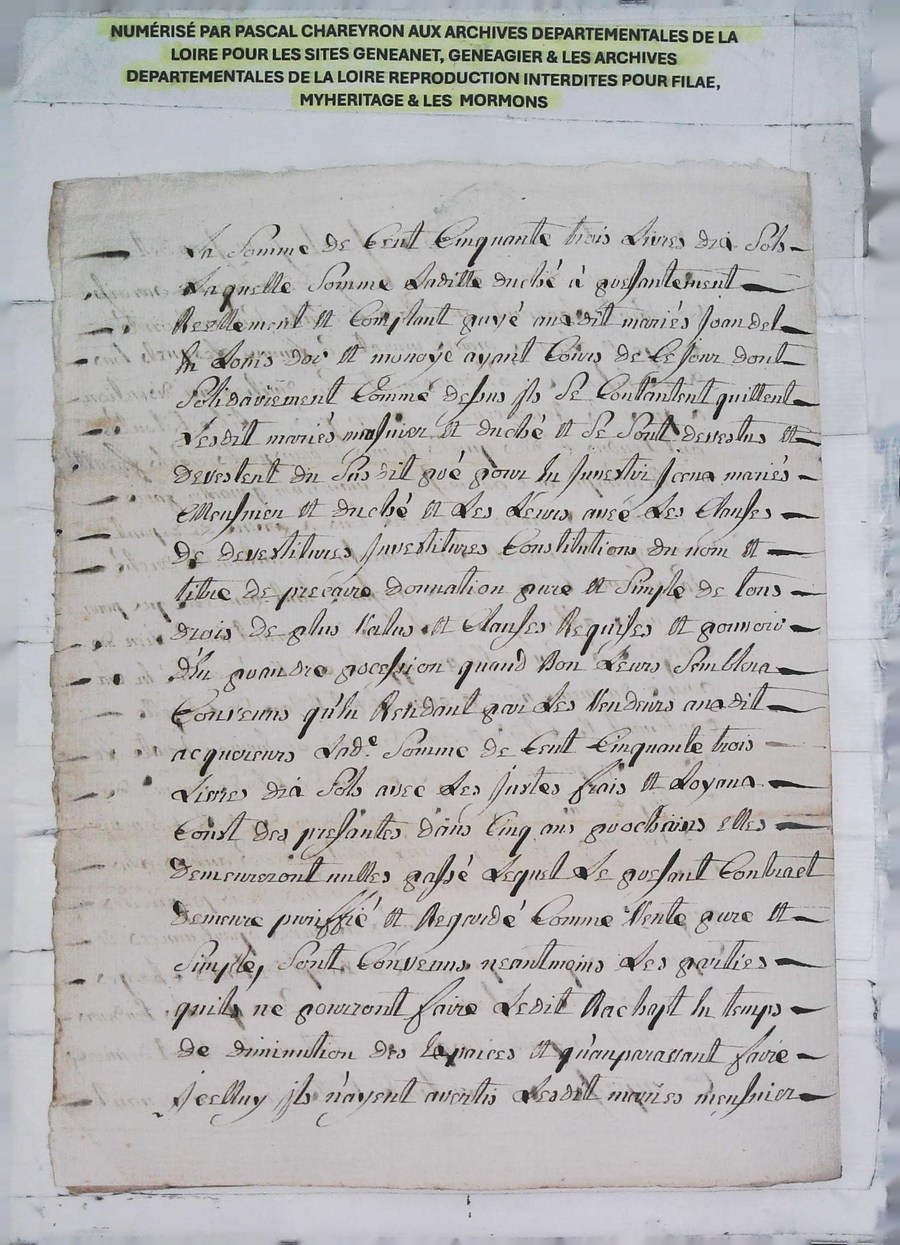 NUMÉRISÉ PAR PASCAL CHAREYRON AUX ARCHIVES DEPARTEMENTALES DE LA
LOIRE POUR LES SITES GENEANET, GENEAGIER & LES ARCHIVES
DEPARTEMENTALES DE LA LOIRE REPRODUCTION INTERDITES POUR FILAE,
MYHERITAGE & LES MORMONS
La Somme de Cent Cinquante trois Livres dix Sols
Laquelle Somme Laditte duché à presantement
Reellement et Comptant payé auxdit mariés Joandel
En Louis dor et monoyé ayant Cours de Ce Jour dont
Solidairement Comme dessus ils Se Contantent quittent
Lesdit mariés musnier et duché et Se Sont devestus et
devestent du Susdit pré pour En Investir Iceux mariés
Meusnier et duché et Les Leurs avec Les Clauses
de devestitures Investitures Constitutions du nom et
titre de precaire donnation pure et Simple de tous
drois de plus Values et Clauses Requises et pouvoir
D'En prandre pocession quand Bon Leurs Semblera
Convenus qu'En Rendant par Les Vendeurs auxdit
acquereurs Lade. Somme de Cent Cinquante trois
Livres dix Sols avec Les Justes frais et Loyaux
Coust des presantes dans Cinq ans prochains elles
demeureront nulles passé Lequel Le presant Contract
demeure puriffié et Regardé Comme Vente pure et
Simple, Sont Convenus neantmoins Les parties
quils ne pourront faire Ledit Rachapt En temps
de diminution des Espaices et qu'auparavant faire
Icelluy ils n'ayent avertis Lesdit mariés meusnier